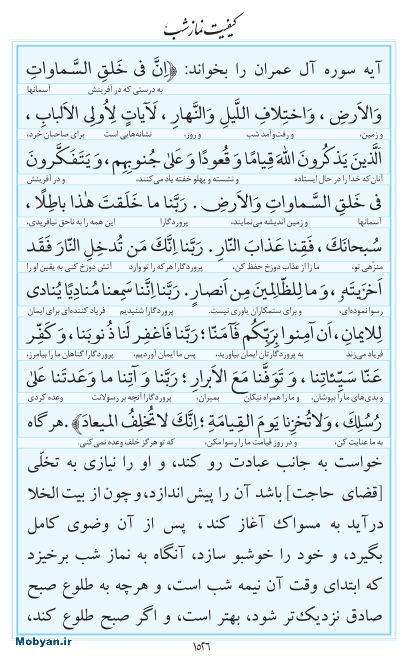 کیفیت نماز شب
آیه سوره آل عمران را بخواند: ﴿اِنَّ فی خَلقِ السَّماواتِ
به درستی که در آفرینش آسمانها
وَالاَرضِ، وَاختِلافِ اللَّیلِ وَالنَّهارِ، لَآیاتٍ لِاُولِی الاَلبابِ،
و زمین، و رفت‌وآمد شب و روز، نشانه‌هایی است برای صاحبان خرد،
اَلَّذینَ یَذکُرونَ اللهَ قِیامًا وَ قُعودًا وَ عَلیٰ جُنوبِهِم، وَ یَتَفَکَّرونَ
آنان‌که خدا را در حال ایستاده و نشسته و پهلو خفته یاد می‌کنند، و در آفرینش
فی خَلقِ السَّماواتِ وَالاَرضِ. رَبَّنا ما خَلَقتَ هٰذا باطِلًا،
آسمانها و زمین اندیشه می‌نمایند، پروردگارا این همه را به ناحق نیافریدی،
سُبحانَکَ، فَقِنا عَذابَ النّارِ. رَبَّنا اِنَّکَ مَن تُدخِلِ النّارَ فَقَد
منزّهی تو، ما را از عذاب دوزخ حفظ کن، پروردگارا هر که را تو وارد آتش دوزخ کنی به یقین او را
اَخزَیتَهٗ، وَ ما لِلظّالِمینَ مِن اَنصارٍ. رَبَّنا اِنَّنا سَمِعنا مُنادِیًا یُنادی
رسوا نموده‌ای، و برای ستمکاران یاوری نیست. پروردگارا شنیدیم فریاد کننده‌ای برای ایمان
لِلایمانِ، اَن آمِنوا بِرَبِّکُم فَآمَنّا؛ رَبَّنا فَاغفِر لَنا ذُنوبَنا، وَ کَفِّر
فریاد می‌زند به پروردگارتان ایمان بیاورید، پس ما ایمان آوردیم، پروردگارا گناهان ما را بیامرز،
عَنّا سَیِّئاتِنا، وَ تَوَفَّنا مَعَ الاَبرارِ؛ رَبَّنا وَ آتِنا ما وَعَدتَنا عَلیٰ
و بدی‌های ما را بپوشان، و ما را همراه نیکان بمیران، پروردگارا آنچه بر رسولانت وعده کردی
رُسُلِکَ، وَلاتُخزِنا یَومَ القِیامَةِ؛ اِنَّکَ لاتُخلِفُ المیعادَ﴾. هر گاه
به ما عنایت کن، و در روز قیامت ما را رسوا مکن، که تو هرگز خلف وعده نمی‌کنی.
خواست به جانب عبادت رو کند، و او را نیازی به تخلّی
[قضای حاجت] باشد آن را پیش اندازد، و چون از بیت الخلا
درآید به مسواک آغاز کند، پس از آن وضوی کامل
بگیرد، و خود را خوشبو سازد، آنگاه به نماز شب برخیزد
که ابتدای وقت آن نیمه شب است، و هرچه به طلوع صبح
صادق نزدیک‌تر شود، بهتر است، و اگر صبح طلوع کند،
Mobyan.ir
۱۵۲۶